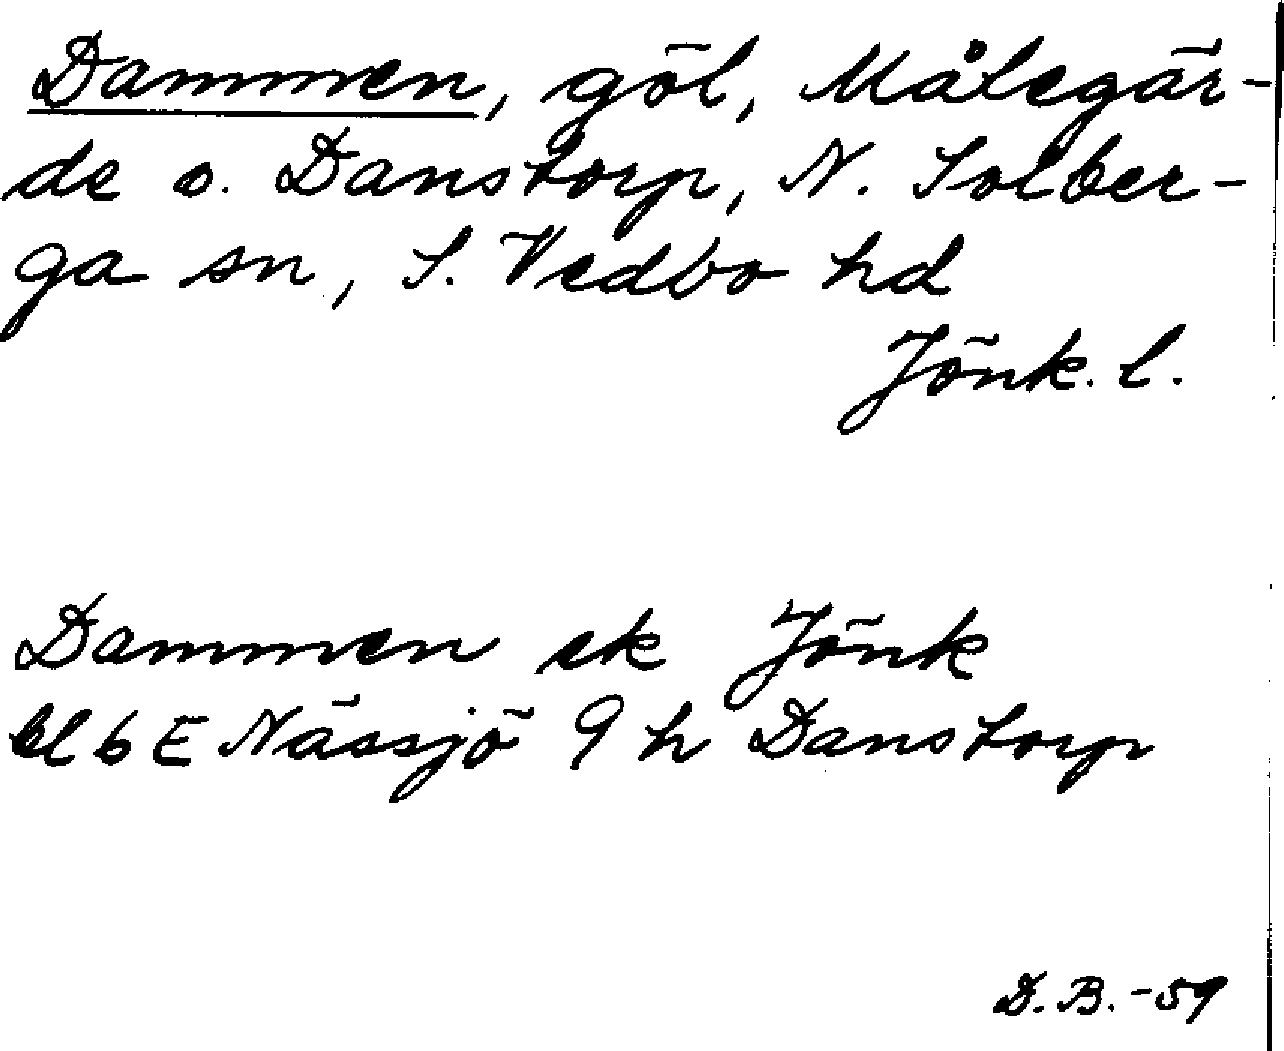 Dammen, göl, Målegär-
de o. Danstorp, N. Solber-
ga sn, S. Vedbo hd
Jönk. l.
Dammen ek Jönk
bl 6 E Nässjö 9 h Danstorp
D. B. -59